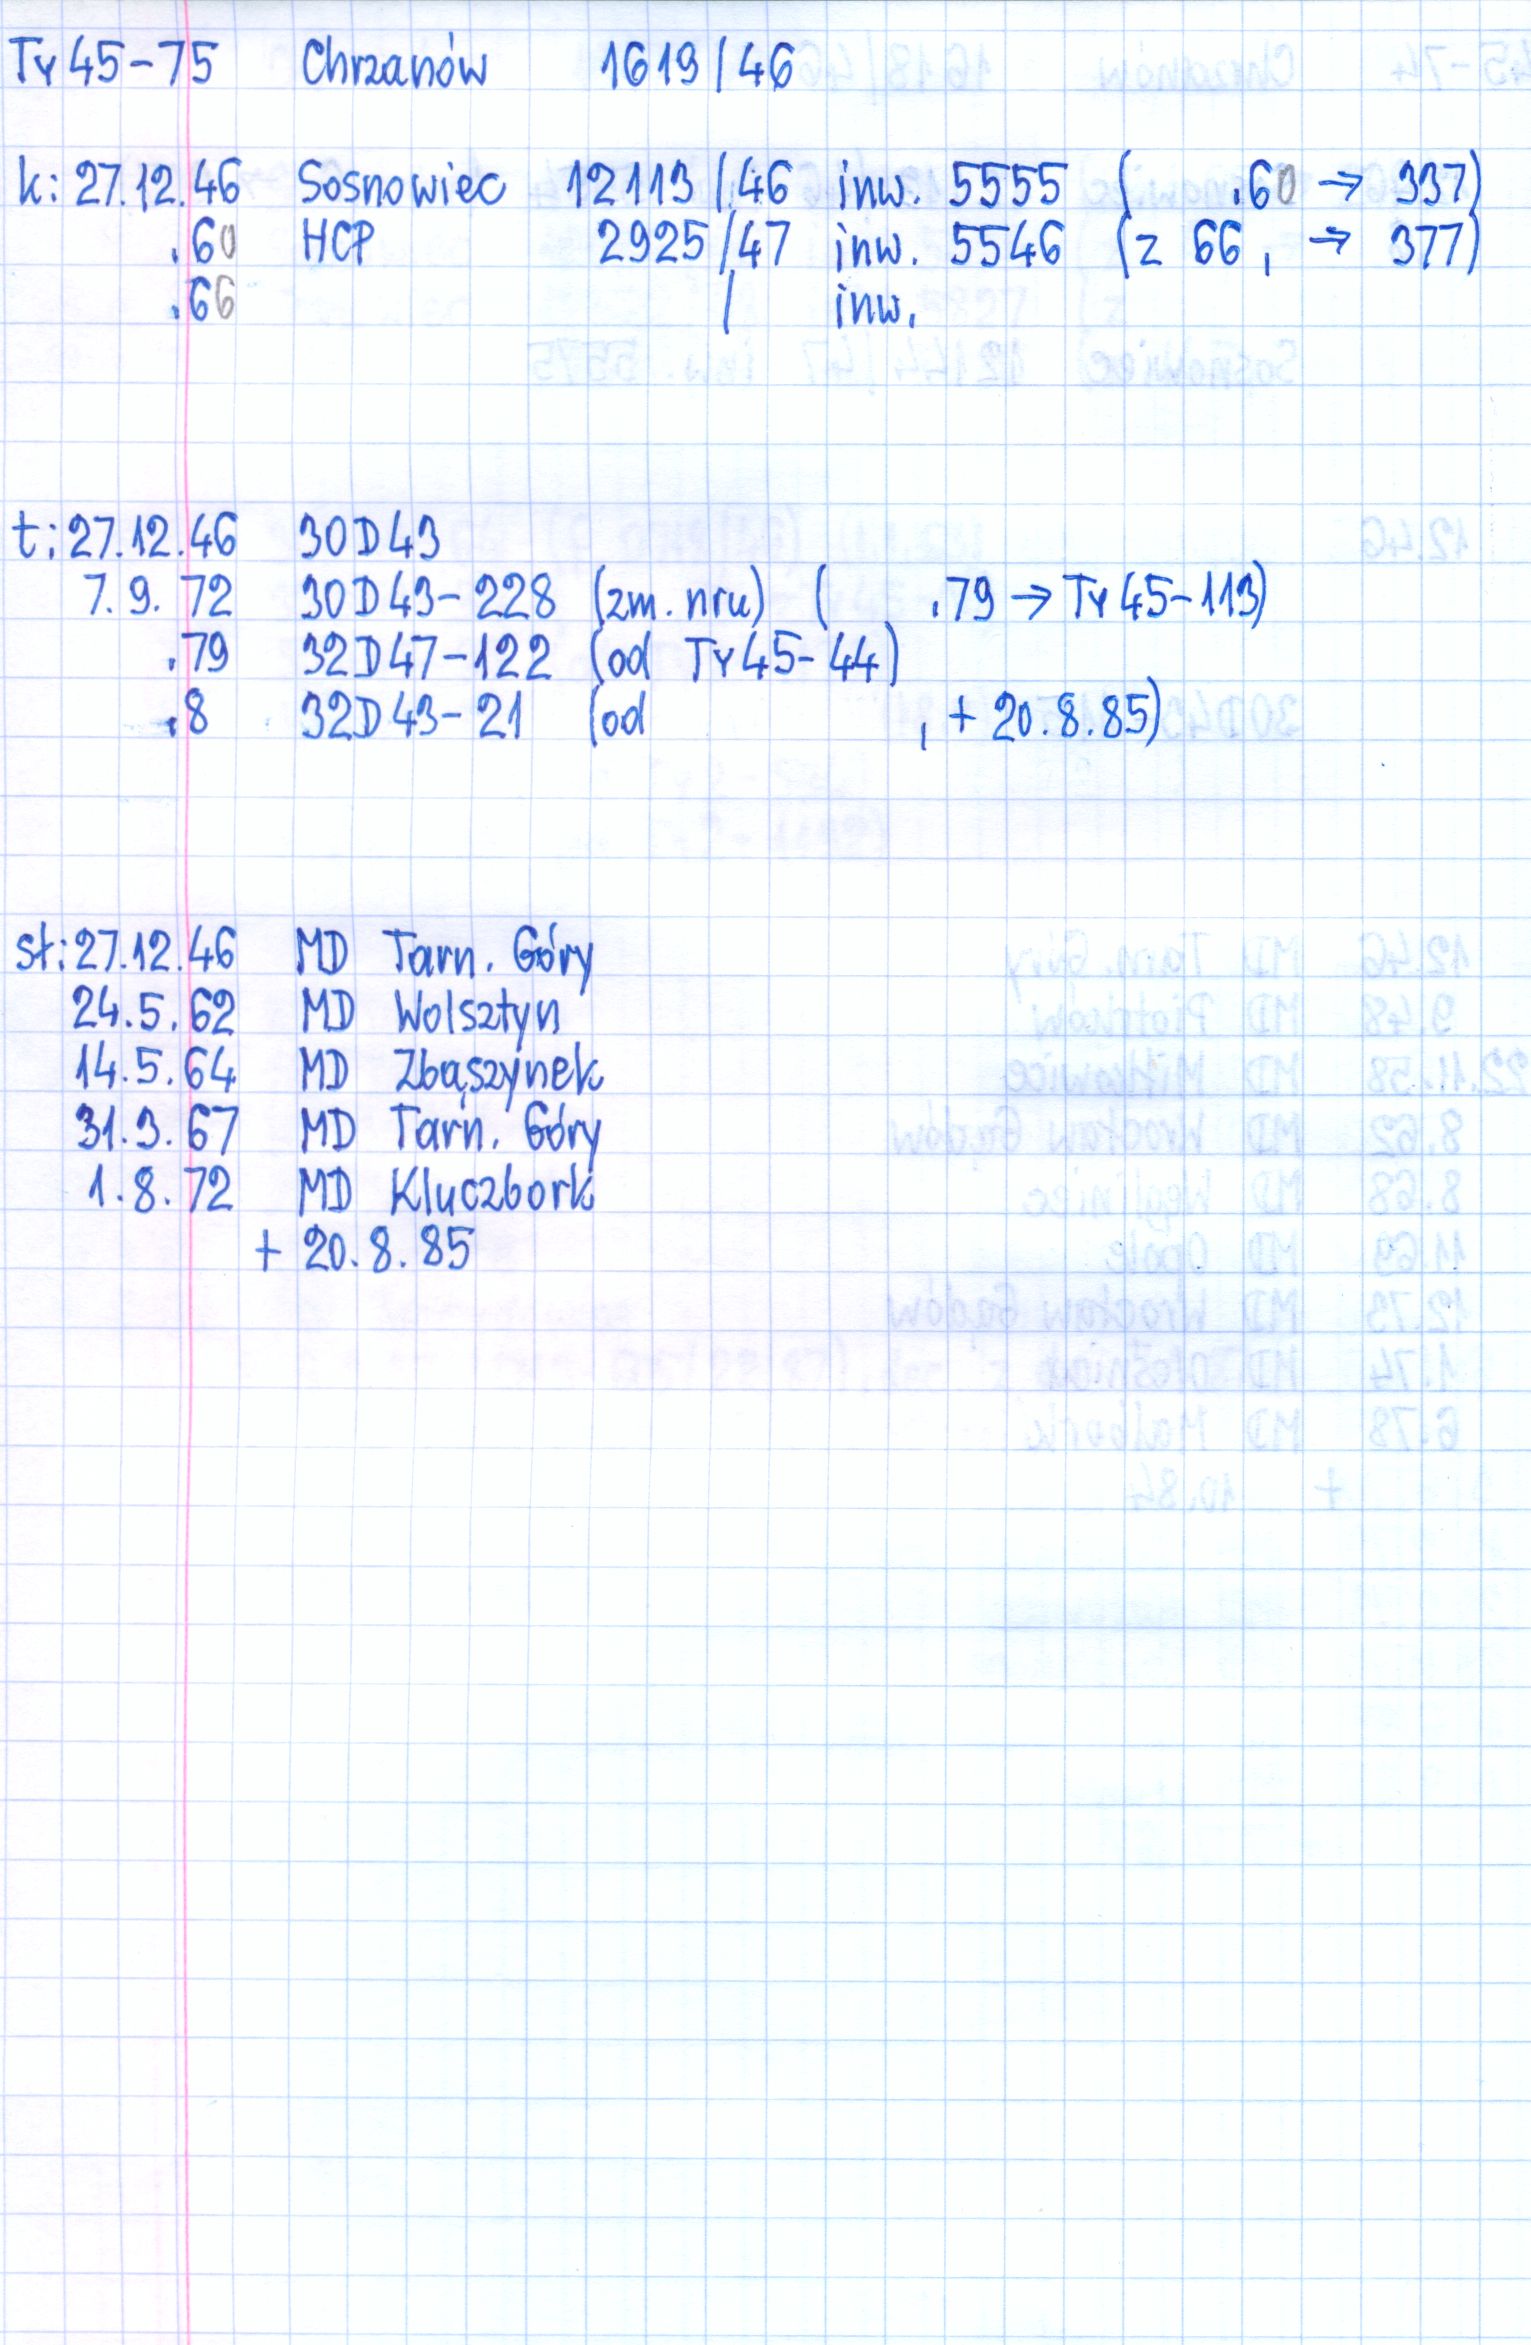 Ty45-75 Chrzanów 1619/46
k: 27.12.46 Sosnowiec 12113/46 inw. 5555 ( .60 → 337)
.60 HCP 2925/47 inw. 5546 (z 66, → 377)
.66 / inw.
t: 27.12.46 30D43
7.9.72 30D43-228 (zm. nru) ( .79 → Ty45-113)
.79 32D47-122 (od Ty45-44)
.8 32D43-21 (od , + 20.8.85)
st: 27.12.46 MD Tarn. Góry
24.5.62 MD Wolsztyn
14.5.64 MD Zbąszynek
31.3.67 MD Tarn. Góry
1.8.72 MD Kluczbork
+ 20.8.85